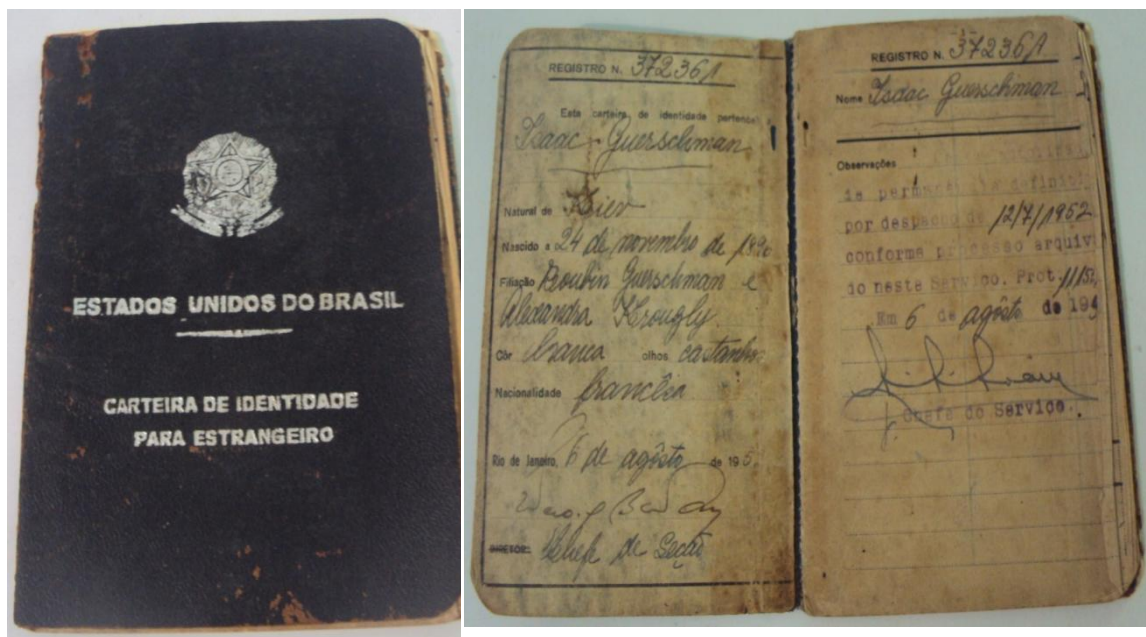 ESTADOS UNIDOS DO BRASIL
CARTEIRA DE IDENTIDADE
PARA ESTRANGEIRO
REGISTRO N. 372361
Esta carteira de identidade pertence a
Isaac Guerschman
Natural de Kiev
Nascido a 24 de novembro de 1890
Filiação Roubin Guerschman e
Alexandra Krougly
Côr branca olhos castanhos
Nacionalidade francêsa
Rio de Janeiro, 6 de agôsto de 195
DIRETOR Chefe de Seção
REGISTRO N. 372361
Nome Isaac Guerschman
Observações
de permanência definiti
por despacho de 12/7/1952
conforme processo arquiva
do neste Serviço. Prot.
Em 6 de agôsto de 195
Chefe do Serviço.